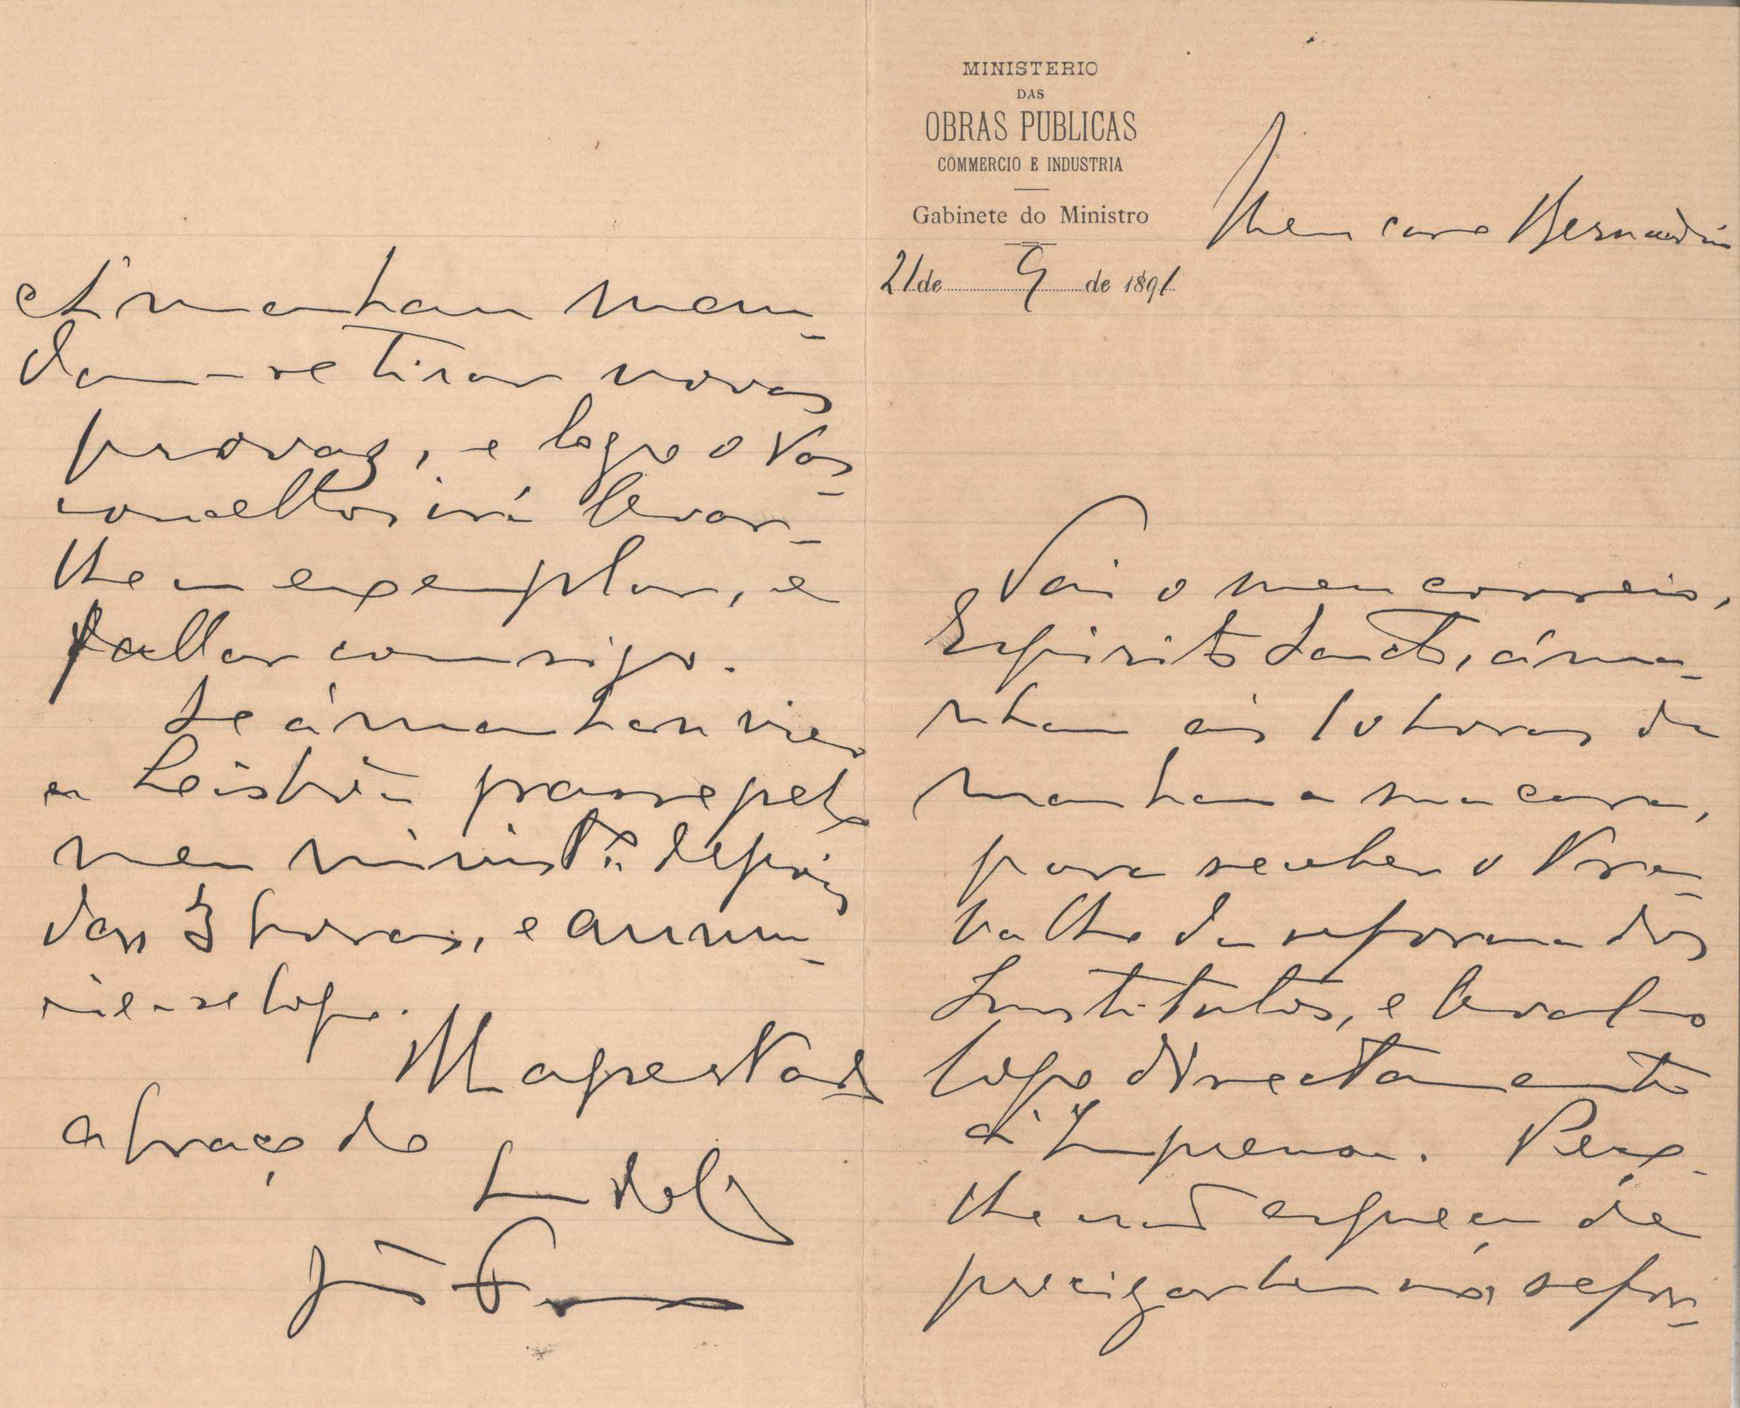 MINISTERIO
DAS
OBRAS PUBLICAS
COMMERCIO E INDUSTRIA
Gabinete do Ministro
21 de 9 de 1891
Meu caro Bernardin
Vai o meu correio,
Espirito Santo, ámа-
nhan ás 10 horas da
manhan a sua casa,
para receber o tra-
balho da reforma dos
Institutos, e leval-o
logo directamente
á Imprensa. Peço-
lhe não esqueça de
precizar bem na refor-
Amanhan man-
dam-se tirar novas
provas, e logo o Vas-
concellos irá levar-
lhe um exemplar, e
fallar comsigo.
Se ámanhan vier
a Lisbôa passe pelo
meu ministrº depois
das 3 horas, e annun-
cie-se logo.
M apertado
abraço do